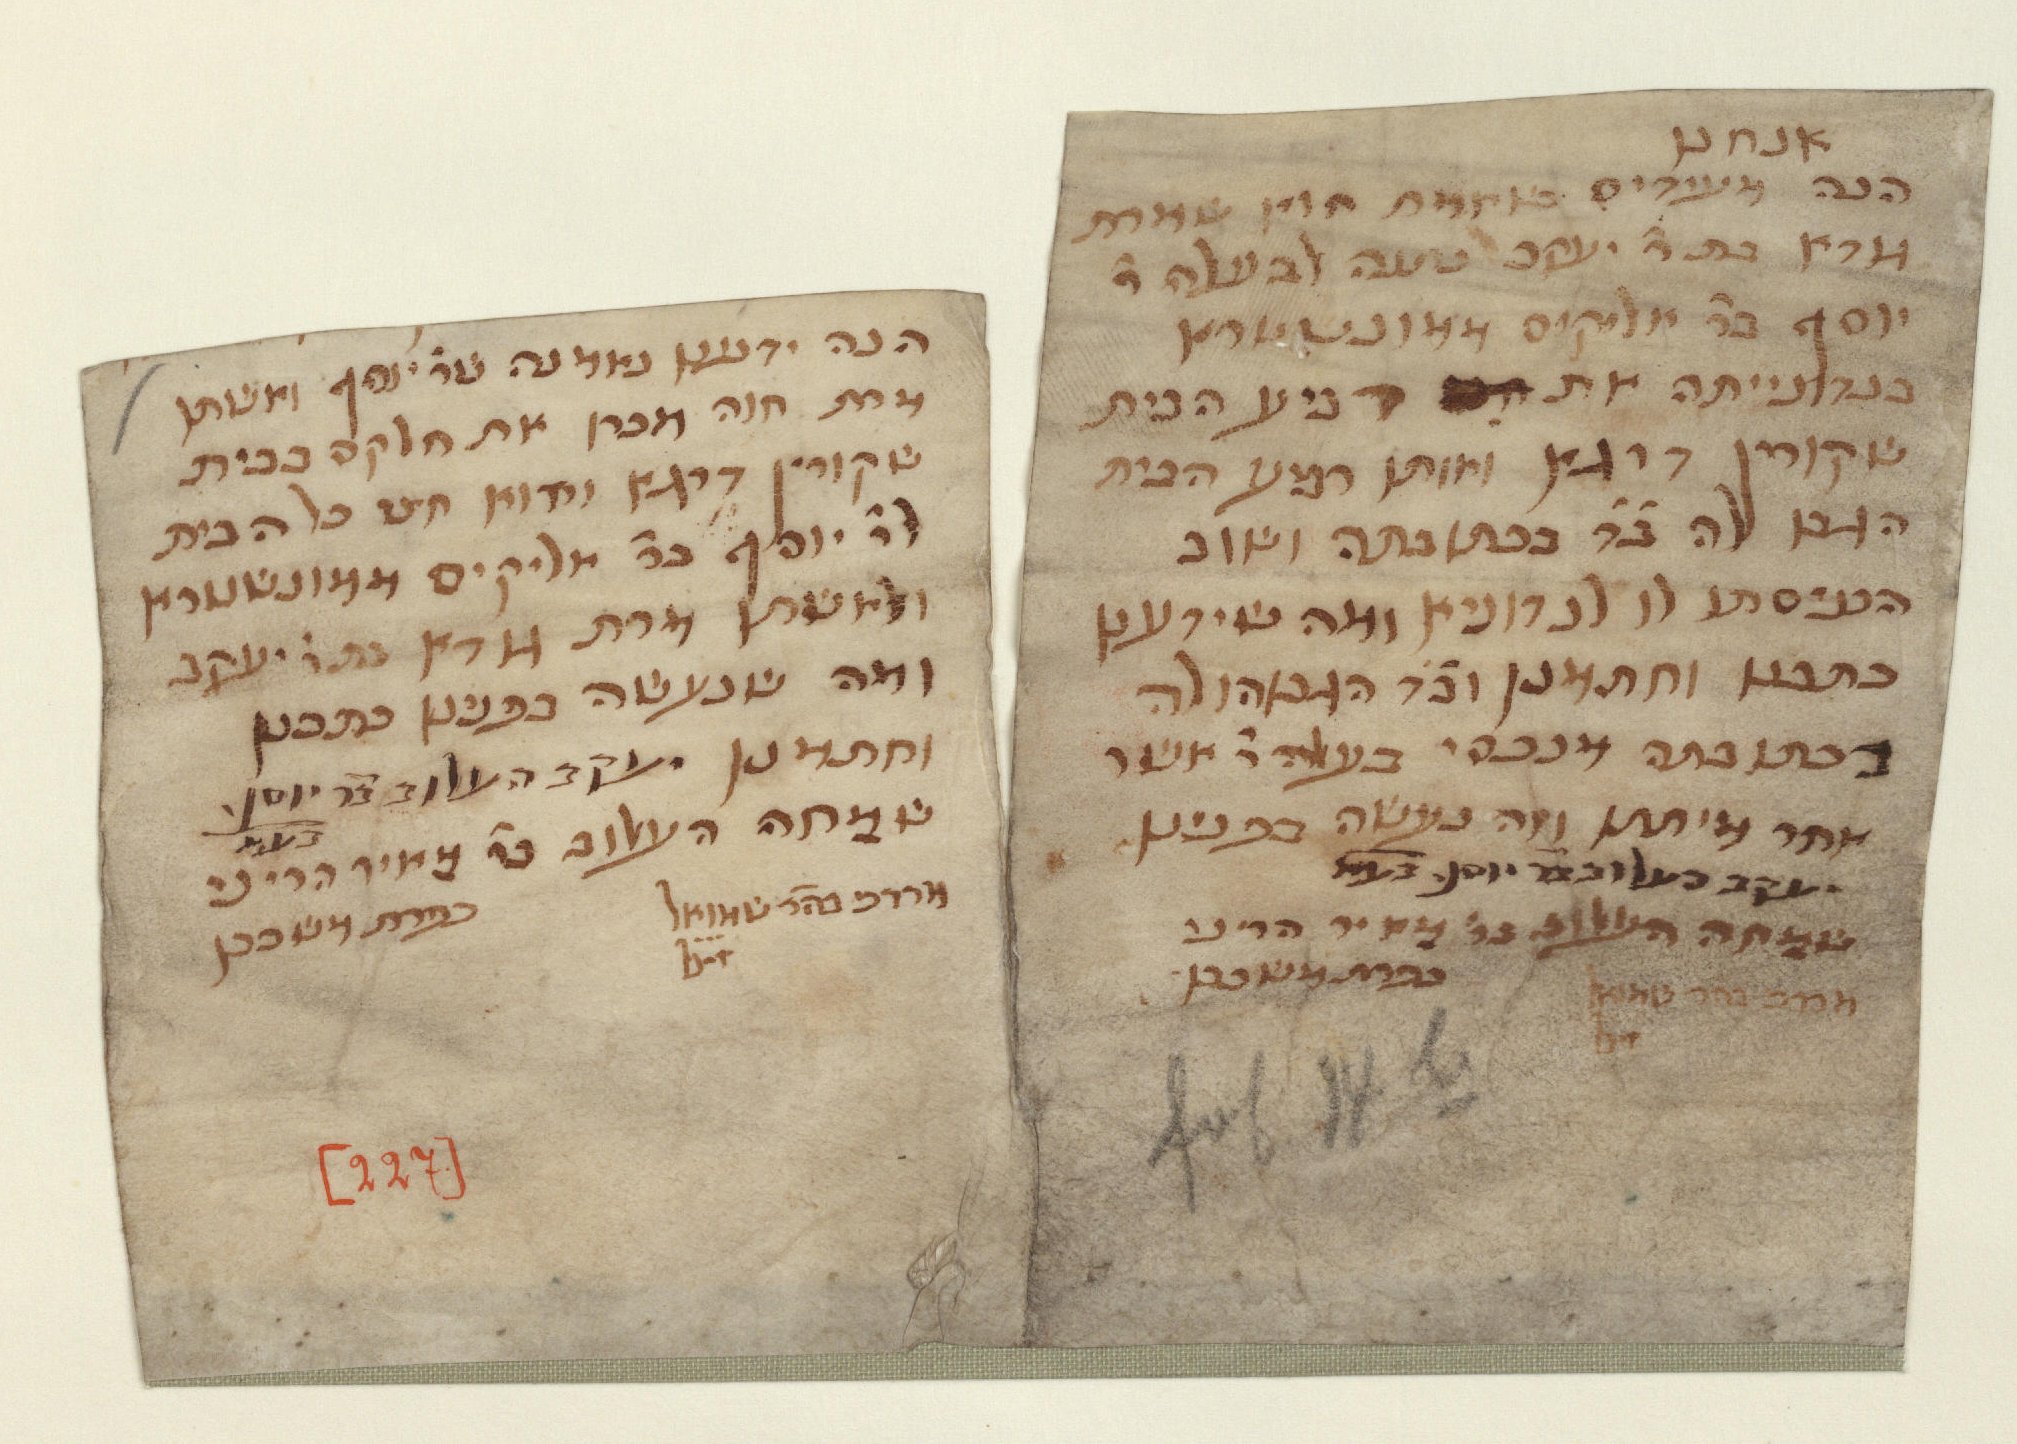 אנחנו
הנה מעידים באמת איך שמרת
גודא בת ר' יעקב לבעלה ר'
יוסף בר' אליקים ממונשטרא
בנדונייתה את רביע הבית
שקורין דיגא ואותו רביע הבית
הגבו לה ב"ד בכתובתה ושוב
הכניסתו לו לנדוניא ומה שידענו
כתבנו וחתמנו וב"ד הגבוהו לה
בכתובתה מנכסי בעלה ר' אשר
אחר מיתתו וזה נעשה בפנינו
יעקב העלוב בר' יוסף
שמחה העלוב בר' מאיר הריני
כפרת משכבו
מרדכי בהר' שמואל
הנה ידענו באמנה שר' יוסף ואשתו
מרת חנה מכרו את חלקם בבית
שקורין דיגא והוא חצי כל הבית
לר' יוסף בר' אליקים ממונשטרא
ולאשתו מרת גודא בת ר' יעקב
ומה שנעשה בפנינו כתבנו
וחתמנו יעקב העלוב בר' יוסף
שמחה העלוב בר' מאיר הריני
כפרת משכבו
מרדכי בהר' שמואל
[227]